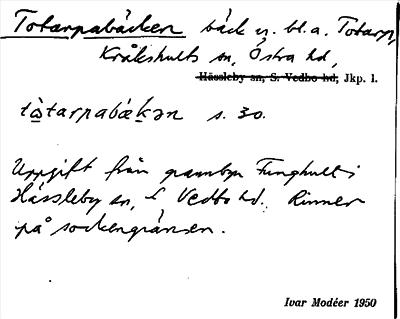 Totarpabäcken bäck v. bl.a. Totarp,
Kråkshults sn, Östra hd,
Hässleby sn, S. Vedbo hd, Jkp. l.
tòtarpabäkən s. 30.
Uppgift från grannbyn Funghult i
Hässleby sn, S Vedbo hd. Rinner
på sockengränsen.
Ivar Modéer 1950